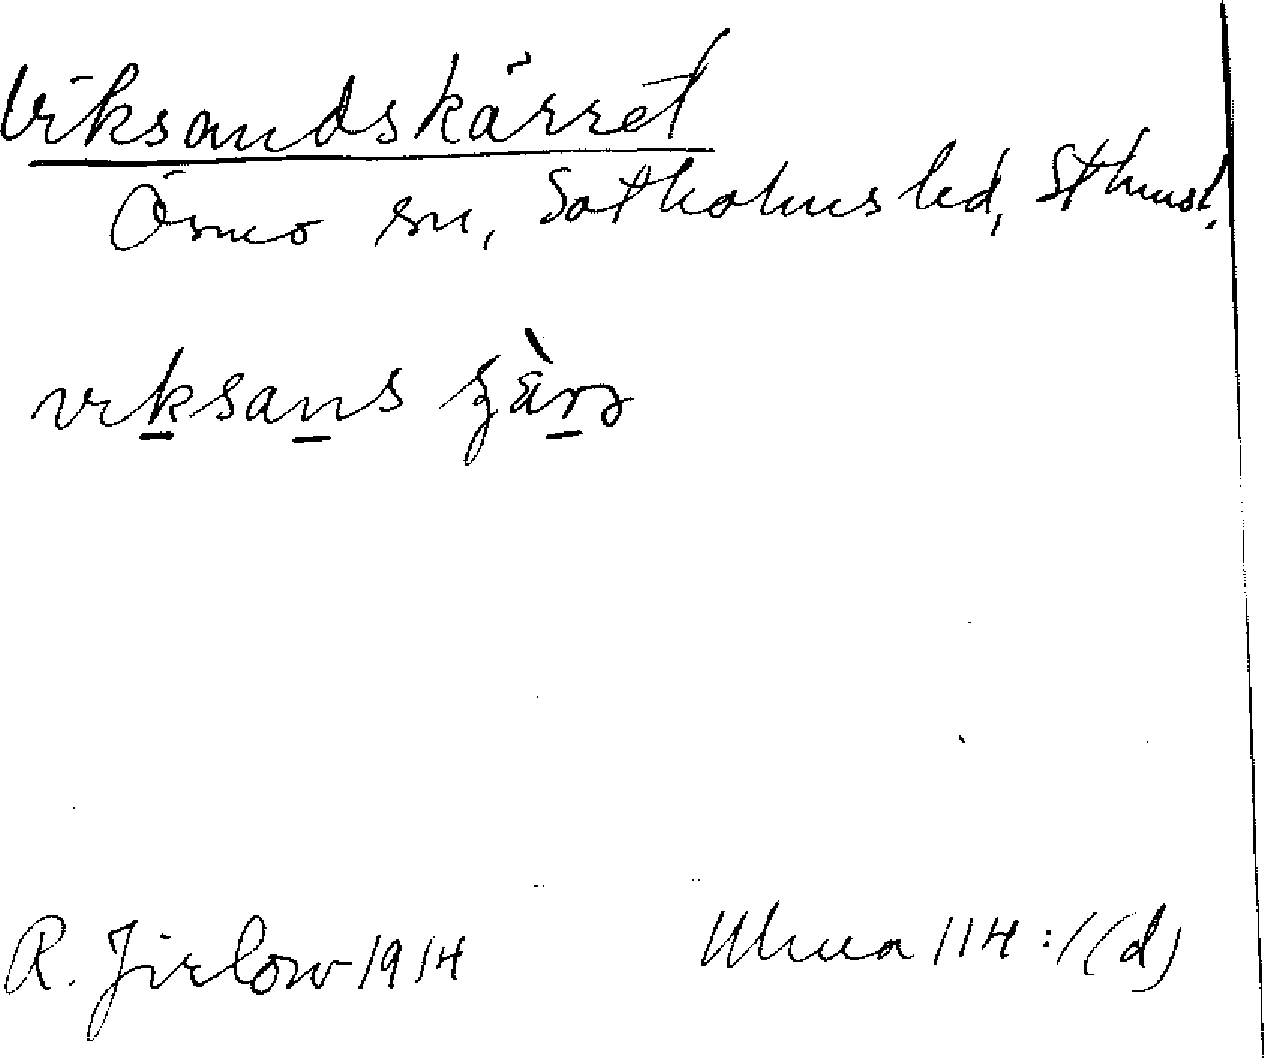 Viksandskärret
Ösmo sn, Sotholms hd, Sthms l.
viksans
R. Jirlow 1914 Ulma 114:1(d)